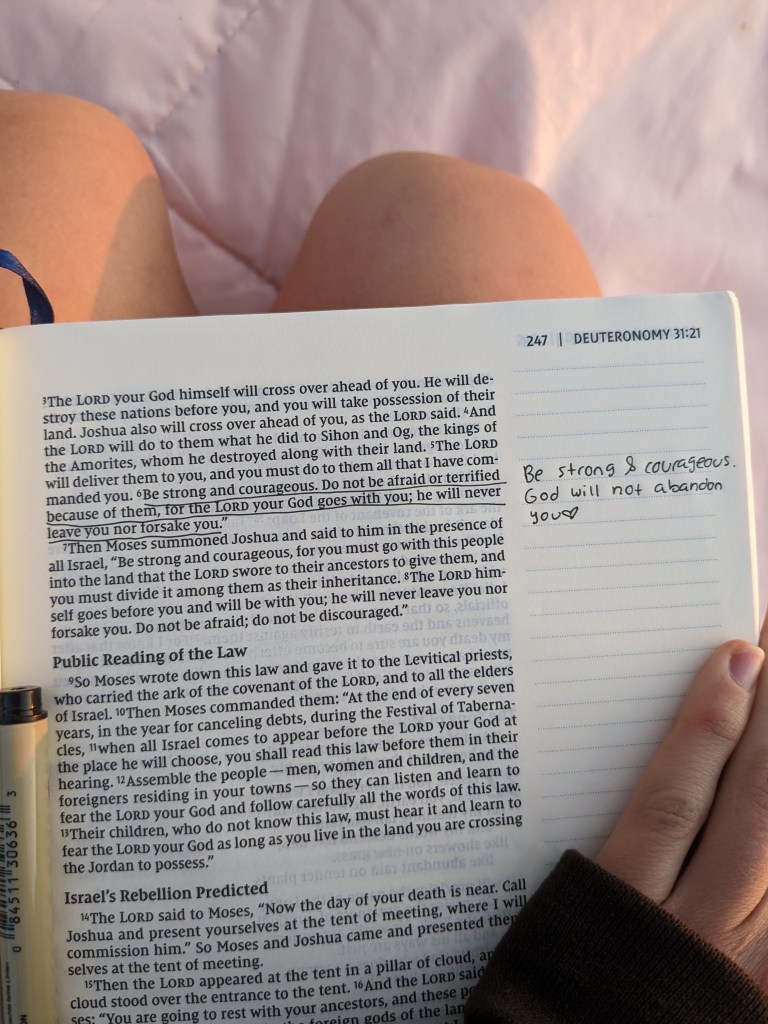 247 | DEUTERONOMY 31:21
³The LORD your God himself will cross over ahead of you. He will de-
stroy these nations before you, and you will take possession of their
land. Joshua also will cross over ahead of you, as the LORD said. ⁴And
the LORD will do to them what he did to Sihon and Og, the kings of
the Amorites, whom he destroyed along with their land. ⁵The LORD
will deliver them to you, and you must do to them all that I have com-
manded you. ⁶Be strong and courageous. Do not be afraid or terrified
because of them, for the LORD your God goes with you; he will never
leave you nor forsake you.”
⁷Then Moses summoned Joshua and said to him in the presence of
all Israel, “Be strong and courageous, for you must go with this people
into the land that the LORD swore to their ancestors to give them, and
you must divide it among them as their inheritance. ⁸The LORD him-
self goes before you and will be with you; he will never leave you nor
forsake you. Do not be afraid; do not be discouraged.”
Public Reading of the Law
⁹So Moses wrote down this law and gave it to the Levitical priests,
who carried the ark of the covenant of the LORD, and to all the elders
of Israel. ¹⁰Then Moses commanded them: “At the end of every seven
years, in the year for canceling debts, during the Festival of Taberna-
cles, ¹¹when all Israel comes to appear before the LORD your God at
the place he will choose, you shall read this law before them in their
hearing. ¹²Assemble the people — men, women and children, and the
foreigners residing in your towns — so they can listen and learn to
fear the LORD your God and follow carefully all the words of this law.
¹³Their children, who do not know this law, must hear it and learn to
fear the LORD your God as long as you live in the land you are crossing
the Jordan to possess.”
Israel’s Rebellion Predicted
¹⁴The LORD said to Moses, “Now the day of your death is near. Call
Joshua and present yourselves at the tent of meeting, where I will
commission him.” So Moses and Joshua came and presented them
selves at the tent of meeting.
¹⁵Then the LORD appeared at the tent in a pillar of cloud,
cloud stood over the entrance to the tent. ¹⁶And the LORD said
ses: “You are going to rest with your ancestors, and these
the foreign gods of the
Be strong & courageous.
God will not abandon
you♡
0 84511 30636 3